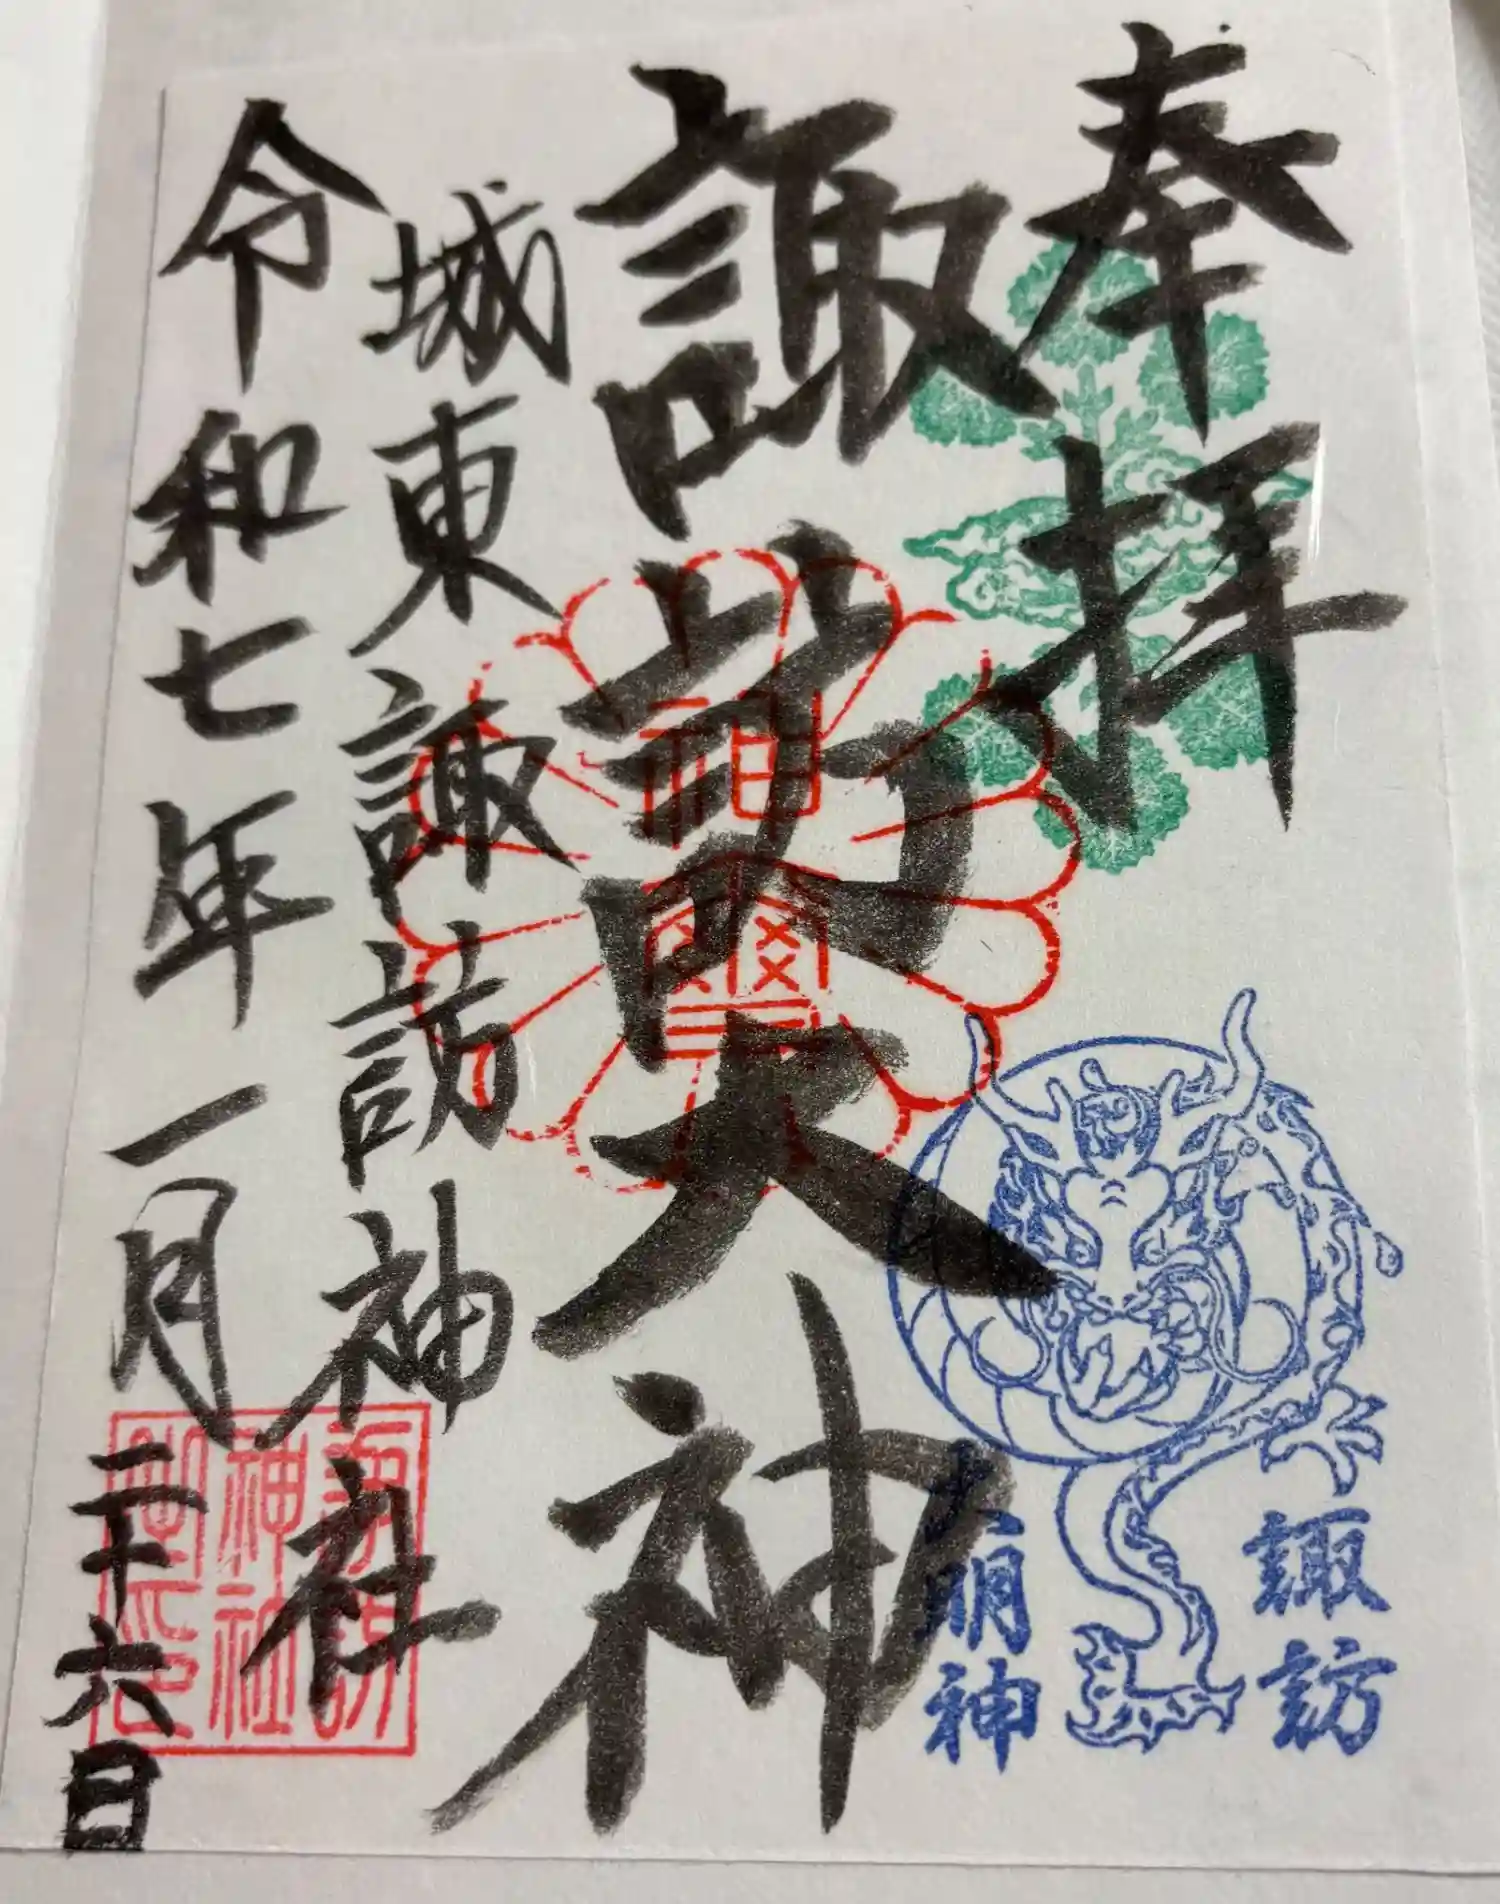 奉拝
諏訪大神
城東諏訪神社
令和七年一月二十六日
神璽
諏訪
大明神
諏訪
神社